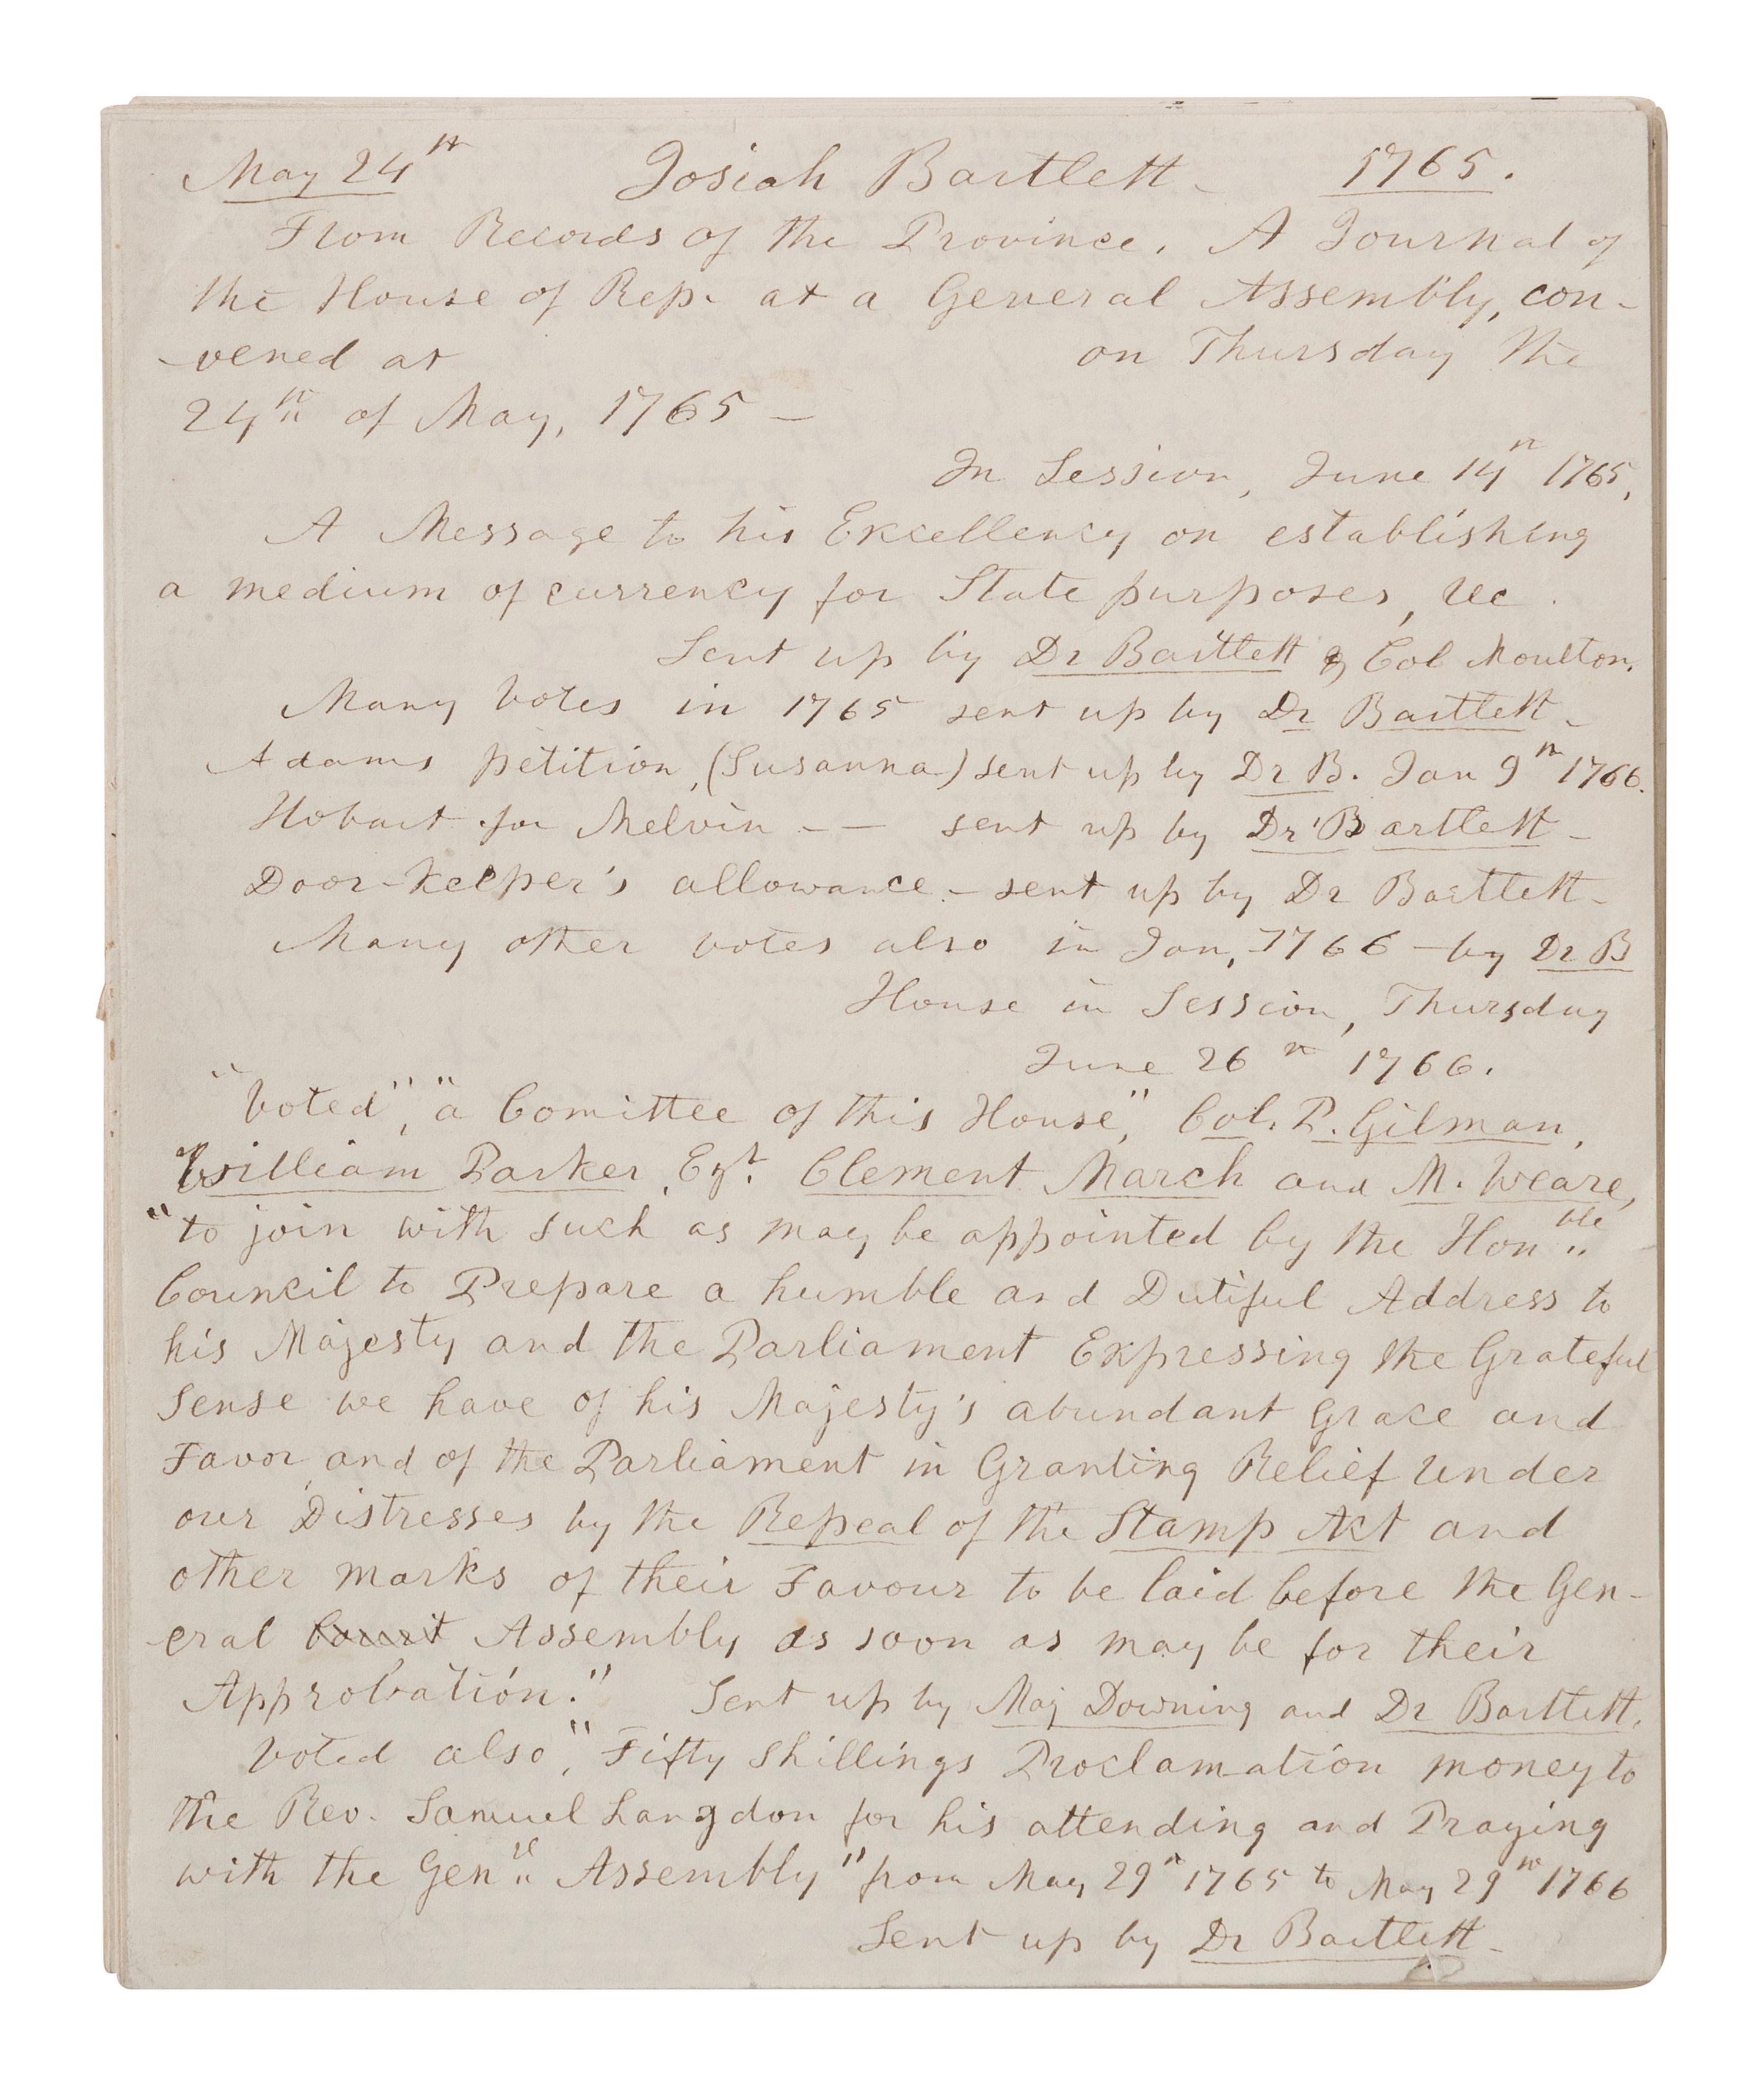 May 24th Josiah Bartlett - 1765.
From Records of the Province. A Journal of
the House of Rep. at a General Assembly, con-
-vened at on Thursday the
24th of May, 1765 -
In Session, June 14th 1765,
A Message to his Excellency on establishing
a medium of currency for State purposes, &c.
Sent up by Dr Bartlett & Col Moulton.
Many votes in 1765 sent up by Dr Bartlett -
Adams petition, (Susanna) sent up by Dr B. Jan 9th 1766.
Hobart for Melvin - - sent up by Dr Bartlett -
Door-Keeper's allowance - sent up by Dr Bartlett -
Many other votes also in Jan, 1766 - by Dr B
House in Session, Thursday
June 26th 1766.
"Voted", "a Comittee of this House", Col. P. Gilman,
William Parker, Esqr. Clement March and M. Weare,
"to join with such as may be appointed by the Honble
Council to Prepare a humble and Dutiful Address to
his Majesty and the Parliament Expressing the Grateful
Sense we have of his Majesty's abundant Grace and
Favor and of the Parliament in Granting Relief under
our Distresses by the Repeal of the Stamp Act and
other marks of their Favour to be laid before the Gen-
-eral Court Assembly as soon as may be for their
Approbation." Sent up by Maj Downing and Dr Bartlett.
Voted also, "Fifty Shillings Proclamation money to
the Rev. Samuel Langdon for his attending and Praying
with the Genll Assembly" from May 29th 1765 to May 29th 1766
Sent up by Dr Bartlett -